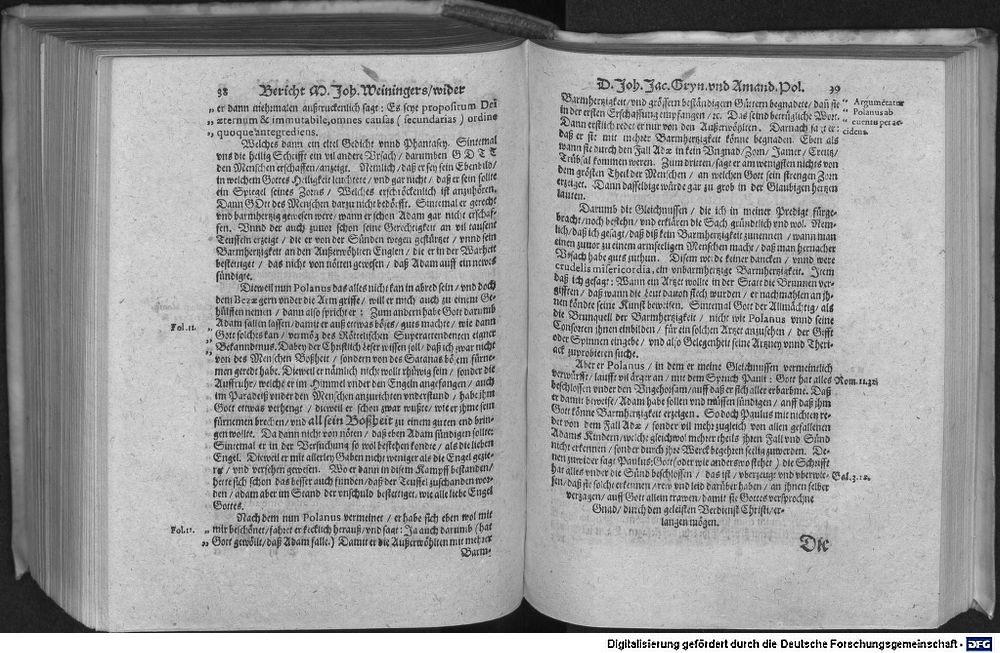 38 Bericht M. Joh. Weiningers/wider
„ er dann mehrmalen außtruckenlich sagt: Es seye propositum Dei
„ æternum & immutabile, omnes causas (secundarias) ordine
„ quoque antegrediens.
Welches dann ein eitel Gedicht vnnd Phantasey. Sintemal
vns die heilig Schrifft ein vil andere Vrsach/ darumben GOTT
den Menschen erschaffen/anzeigt. Nemlich/ daß er sey sein Ebenbild/
in welchem Gottes Heiligkeit leuchtete/ vnd gar nicht/ daß er sein sollte
ein Spiegel seines Zorns/ Welches erschröckenlich ist anzuhören.
Dann GOtt des Menschen darzu nicht bedörfft. Sintemal er gerecht
vnd barmhertzig gewesen were/ wann er schon Adam gar nicht erschaf-
fen. Vnnd der auch zuuor schon seine Gerechtigkeit an vil tausent
Teuffeln erzeigt/ die er von der Sünden wegen gestürtzet/ vnnd sein
Barmhertzigkeit an den Außerwöhlten Englen/ die er in der Warheit
bestettiget/ das nicht von nötten gewesen/ daß Adam auff ein newes
sündigte.
Dieweil nun Polanus das alles nicht kan in abred sein/ vnd doch
dem Bezæ gern vnder die Arm griffe/ will er mich auch zu einem Ge-
hülffen nemen/ dann also spricht er: Zum andern habe Gott darumb
Fol. 11. „ Adam fallen lassen/ damit er auß etwas böses/ guts machte/ wie dann
„ Gott solchs kan/ vermög des Röttelischen Superattendenten eigner
„ Bekandtnus. Dabey der Christlich Leser wissen soll/ daß ich zwar nicht
von des Menschen Boßheit/ sondern von des Satanas bösem fürne-
men geredt habe. Dieweil er nämlich nicht wollt rhüwig sein/ sonder die
Auffruhr/ welche er im Himmel vnder den Engeln angefangen/ auch
im Paradeiß vnder den Menschen anzurichten vnderstund/ habe ihm
Gott etwas verhengt/ dieweil er schon zwar wußte/ wie er ihme sein
fürnemen brechen/ vnd all sein Boßheit zu einem guten end brin-
gen wollte. Da dann nicht von nöten/ daß eben Adam sündigen sollte:
Sintemal er in der Versuchung so wol bestehen kondte/ als die lieben
Engel. Dieweil er mit allerley Gaben nicht weniger als die Engel gezie-
ret/ vnd versehen gewesen. Wo er dann in disem Kampff bestanden/
hette sich schon das besser auch funden/ daß der Teuffel zuschanden wor-
den/ adam aber im Stand der vnschuld bestettiget, wie alle liebe Engel
Gottes.
Nach dem nun Polanus vermeinet/ er habe sich eben wol mit
Fol. 11. „ mir beschönet/ fahret er kecklich herauß/ vnd sagt: Ja auch darumb (hat
„ Gott gewöllt/ daß Adam falle.) Damit er die Außerwöhlten mit mehrer
Barm-
D. Joh. Jac. Gryn. vnd Amand. Pol. 39
Barmhertzigkeit/ vnd grössern beständigern Gütern begnadete/ daß sie “ Argumétatur
in der ersten Erschaffung empfangen/ ꝛc. Das seind betrügliche Wort. “ Polanus ab
Dann erstlich redet er nur von den Außerwöhlten. Darnach sagt er: “ euentu per ac-
daß er sie mit mehrer Barmhertzigkeit könne begnaden. Eben als cidens.
wann sie durch den Fall Adæ in kein Vngnad/ Zorn/ Jamer/ Creutz/
Trübsal kommen weren. Zum dritten/ sagt er am wenigsten nichts von
dem grösten Theil der Menschen/ an welchen Gott sein strengen Zorn
erzeiget. Dann dasselbige würde gar zu grob in der Glaubigen hertzen
lauten.
Darumb die Gleichnussen/ die ich in meiner Predigt fürge-
bracht/ noch bestehn/ vnd erklären die Sach gründtlich vnd wol. Nem-
lich/ daß ich gesagt/ daß diß kein Barmhertzigkeit zunennen/ wann man
einen zuuor zu einem armseeligen Menschen macht/ daß man hernacher
Vrsach habe guts zuthun. Disem werde keiner dancken/ vnnd were
crudelis misericordia, ein vnbarmhertzige Barmhertzigkeit. Item
daß ich gesagt: Wann ein Artzet wollte in der Statt die Brunnen ver-
gifften/ daß wann die Leut dauon siech wurden/ er nachmahlen an jh-
nen köndte seine Kunst beweisen. Sintemal Gott der Allmächtig/ als
die Brunquell der Barmhertzigkeit/ nicht wie Polanus vnnd seine
Consorten ihnen einbilden/ für ein solchen Artzet anzusehen/ der Gifft
oder Spinnen eingebe/ vnd also Gelegenheit seine Artzney vnnd Theri-
ack zuprobieren suche.
Aber er Polanus/ in dem er meine Gleichnussen vermeintlich
verwürfft/ laufft vil ärger an/ mit dem Spruch Pauli: Gott hat alles Rom. 11. 32.
beschlossen vnder den Vngehorsam/ auff daß er sich aller erbarme. Daß
er damit beweise/ Adam habe sollen vnd müssen sündigen/ auff daß jhm
Gott könne Barmhertzigkeit erzeigen. So doch Paulus mit nichten re-
det von dem Fall Adæ/ sonder vil mehr zugleich von allen gefallenen
Adams Kindern/ welche gleichwol mehrer theils jhren Fall vnd Sünd
nicht erkennen/ sonder durch jhre Werck begehren seelig zuwerden. De-
nen zuwider sagt Paulus: Gott (oder wie anderswo stehet) die Schrifft
hat alles vnder die Sünd beschlossen/ das ist/ vberzeugt vnd vberwie- Gal. 3. 22.
sen/ daß sie solche erkennen/ rew vnd leid darüber haben/ an jhnen selber
verzagen/ auff Gott allein trawen/ damit sie Gottes versprochne
Gnad/ durch den geleisten Verdienst Christi/ er-
langen mögen.
Die
Digitalisierung gefördert durch die Deutsche Forschungsgemeinschaft - DFG